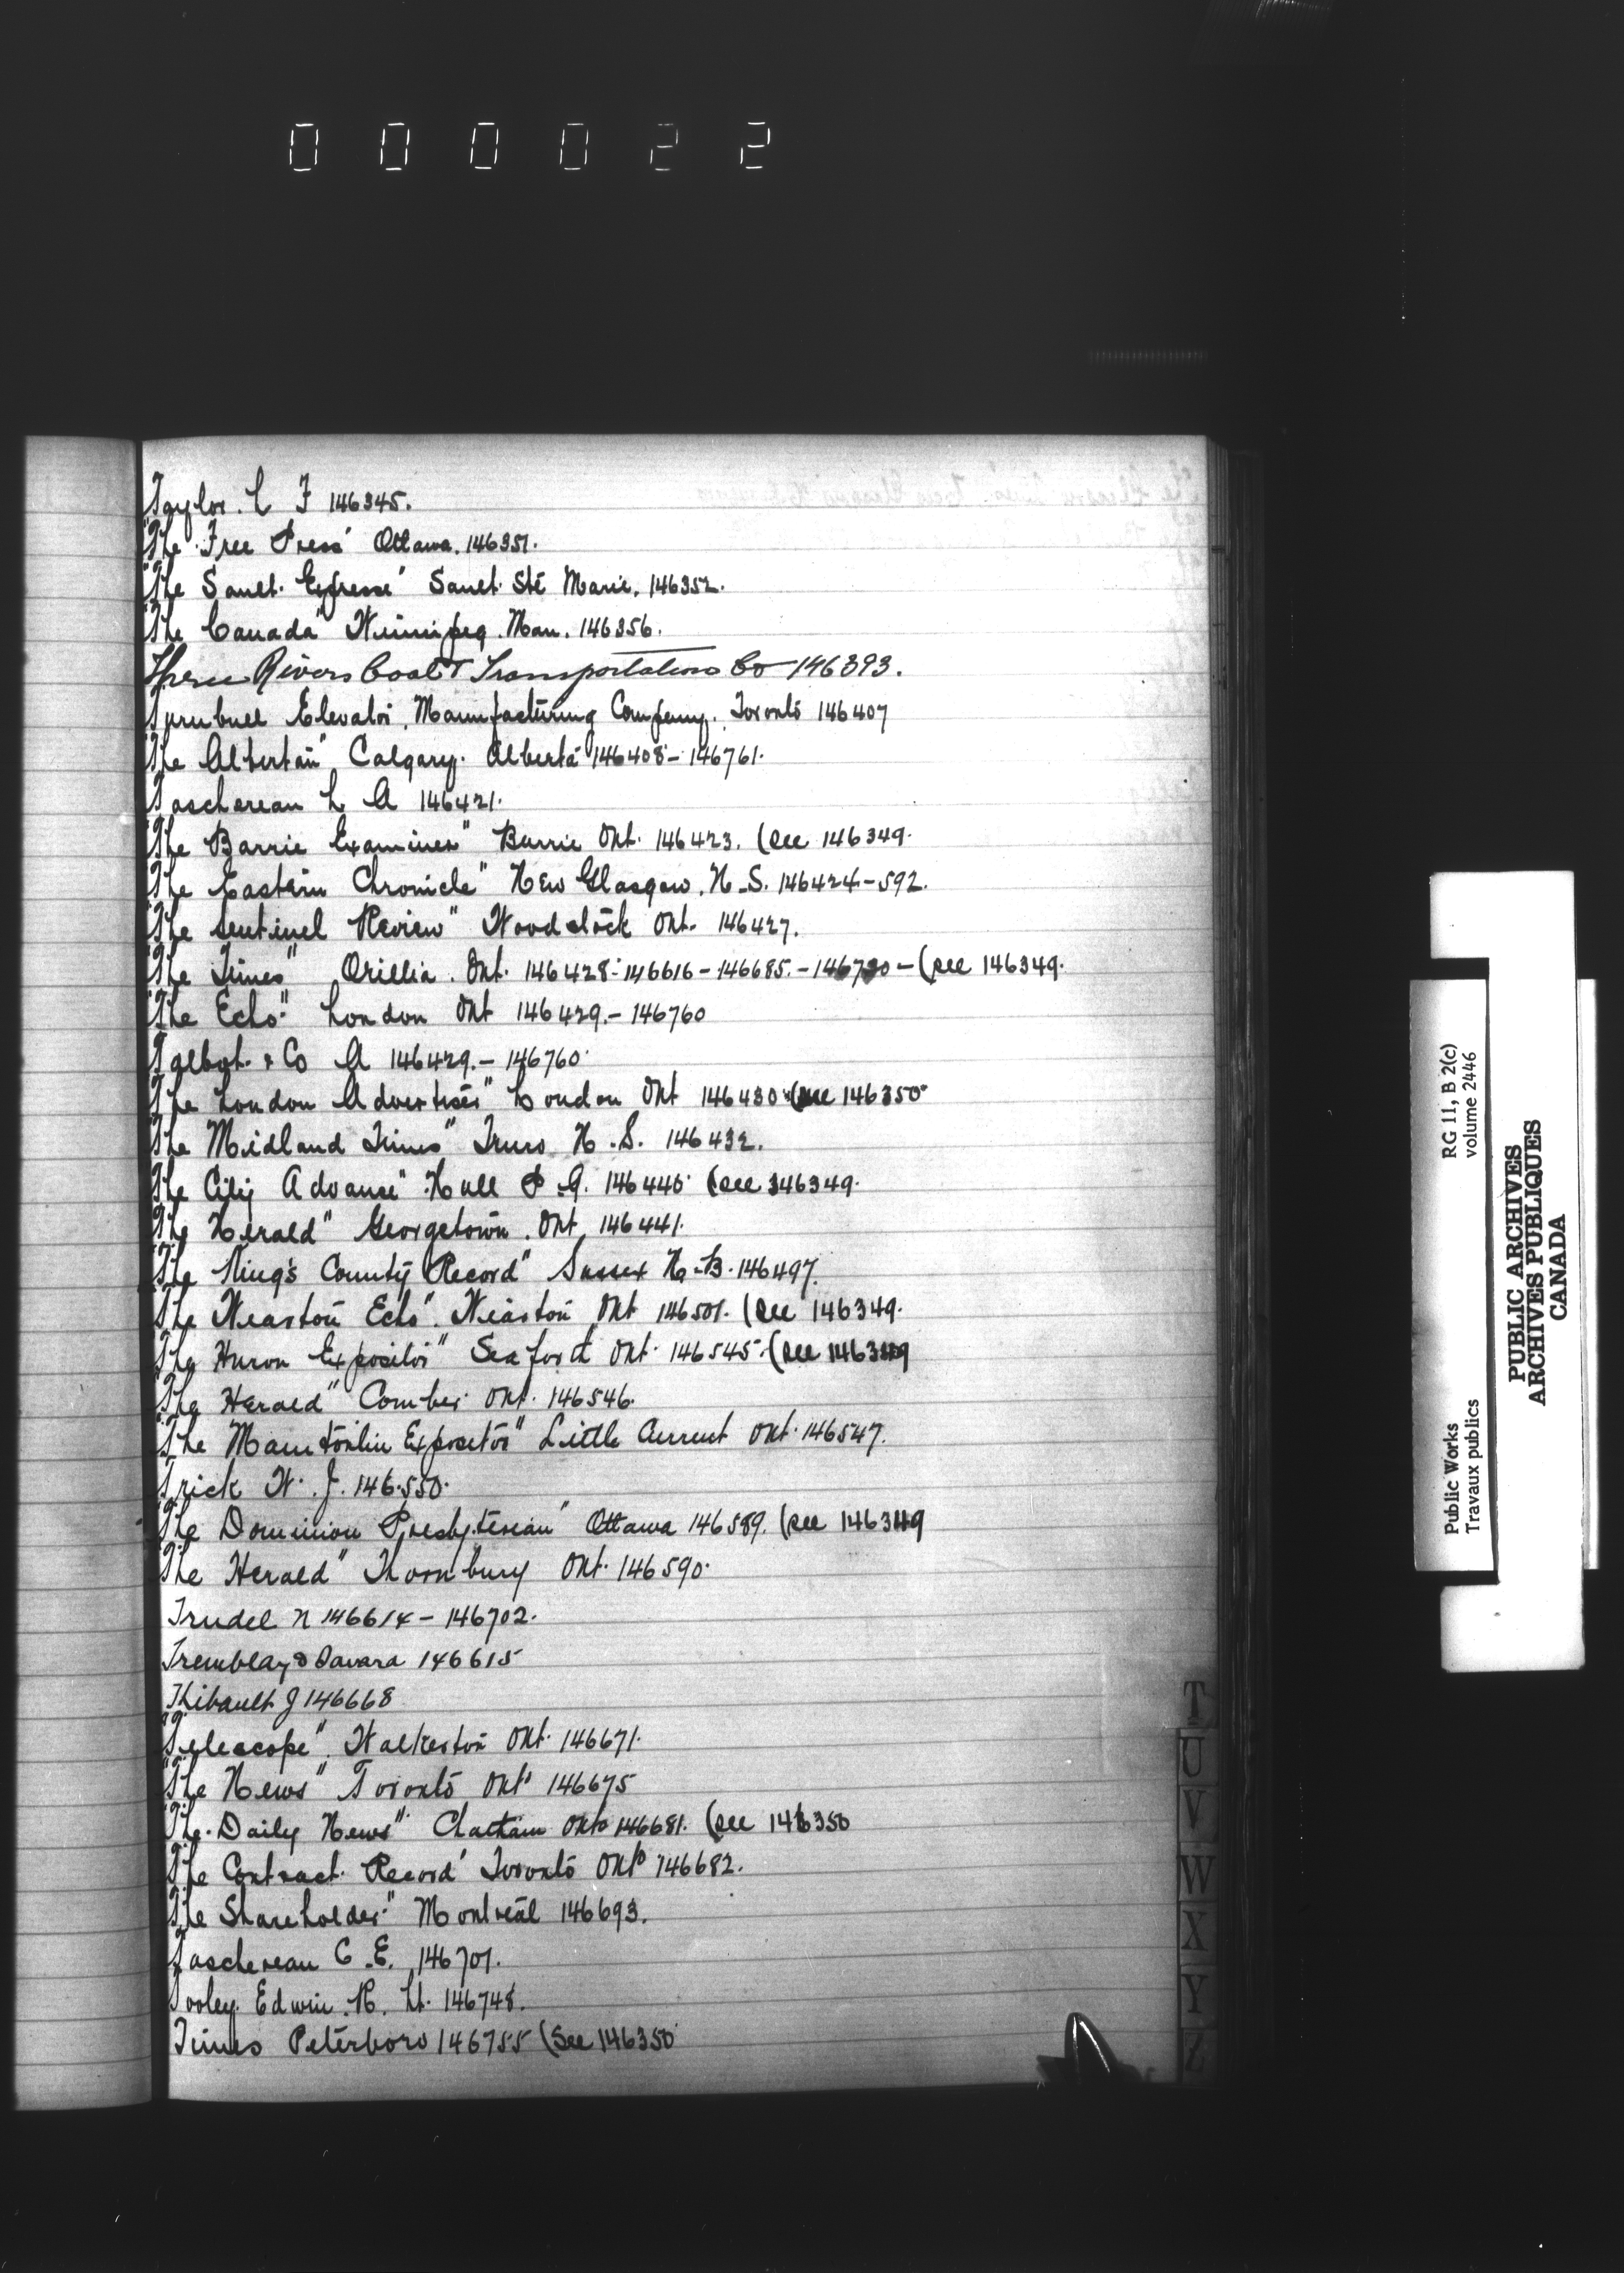 000022
Taylor. L F 146345.
"The Free Press" Ottawa. 146351.
"The Sault Express" Sault Ste Marie. 146352.
"The Canada" Winnipeg. Man. 146356.
Three Rivers Coal & Transportation Co 146393.
Turnbull Elevator. Manufacturing Company. Toronto 146407
"The Albertan" Calgary. Alberta 146408 - 146761.
Taschereau L A 146421.
"The Barrie Examiner" Barrie Ont. 146423. (see 146349.
"The Eastern Chronicle" New Glasgow. N.S. 146424-592.
"The Sentinel Review" Woodstock Ont. 146427.
"The Times" Orillia. Ont. 146428-146616-146685.-146730-(see 146349.
"The Echo" London Ont 146429.-146760
Talbot. & Co A 146429.-146760.
"The London Advertiser" London Ont 146430 (see 146350
"The Midland Times" Truro N.S. 146432.
"The City Advance" Hull P.Q. 146440 (see 346349.
"The Herald" Georgetown. Ont 146441.
"The King's County Record" Sussex N-B. 146497.
"The Wiarton Echo". Wiarton Ont 146501. (see 146349.
"The Huron Expositor" Seaforth Ont. 146545. (see 146349
"The Herald" Comber Ont. 146546.
"The Manitoulin Expositor" Little Current Ont. 146547.
Trick W. J. 146550.
"The Dominion Presbyterian" Ottawa 146589. (see 146349
"The Herald" Thornbury Ont. 146590.
Trudel N 146614 - 146702.
Tremblay & 146615
Thibault J 146668
"Telescope". Walkerton Ont. 146671.
"The News" Toronto Ont 146675
"The Daily News" Chatham Onto 146681. (see 146350
"The Contract Record" Toronto Onto 146682.
"The Shareholder" Montreal 146693.
Taschereau C.E. 146701.
Tooley. Edwin. R. Lt. 146748.
Times Peterboro 146755 (See 146350
T
U
V
W
X
Y
Z
Public Works RG 11, B 2(c)
Travaux publics volume 2446
PUBLIC ARCHIVES
ARCHIVES PUBLIQUES
CANADA